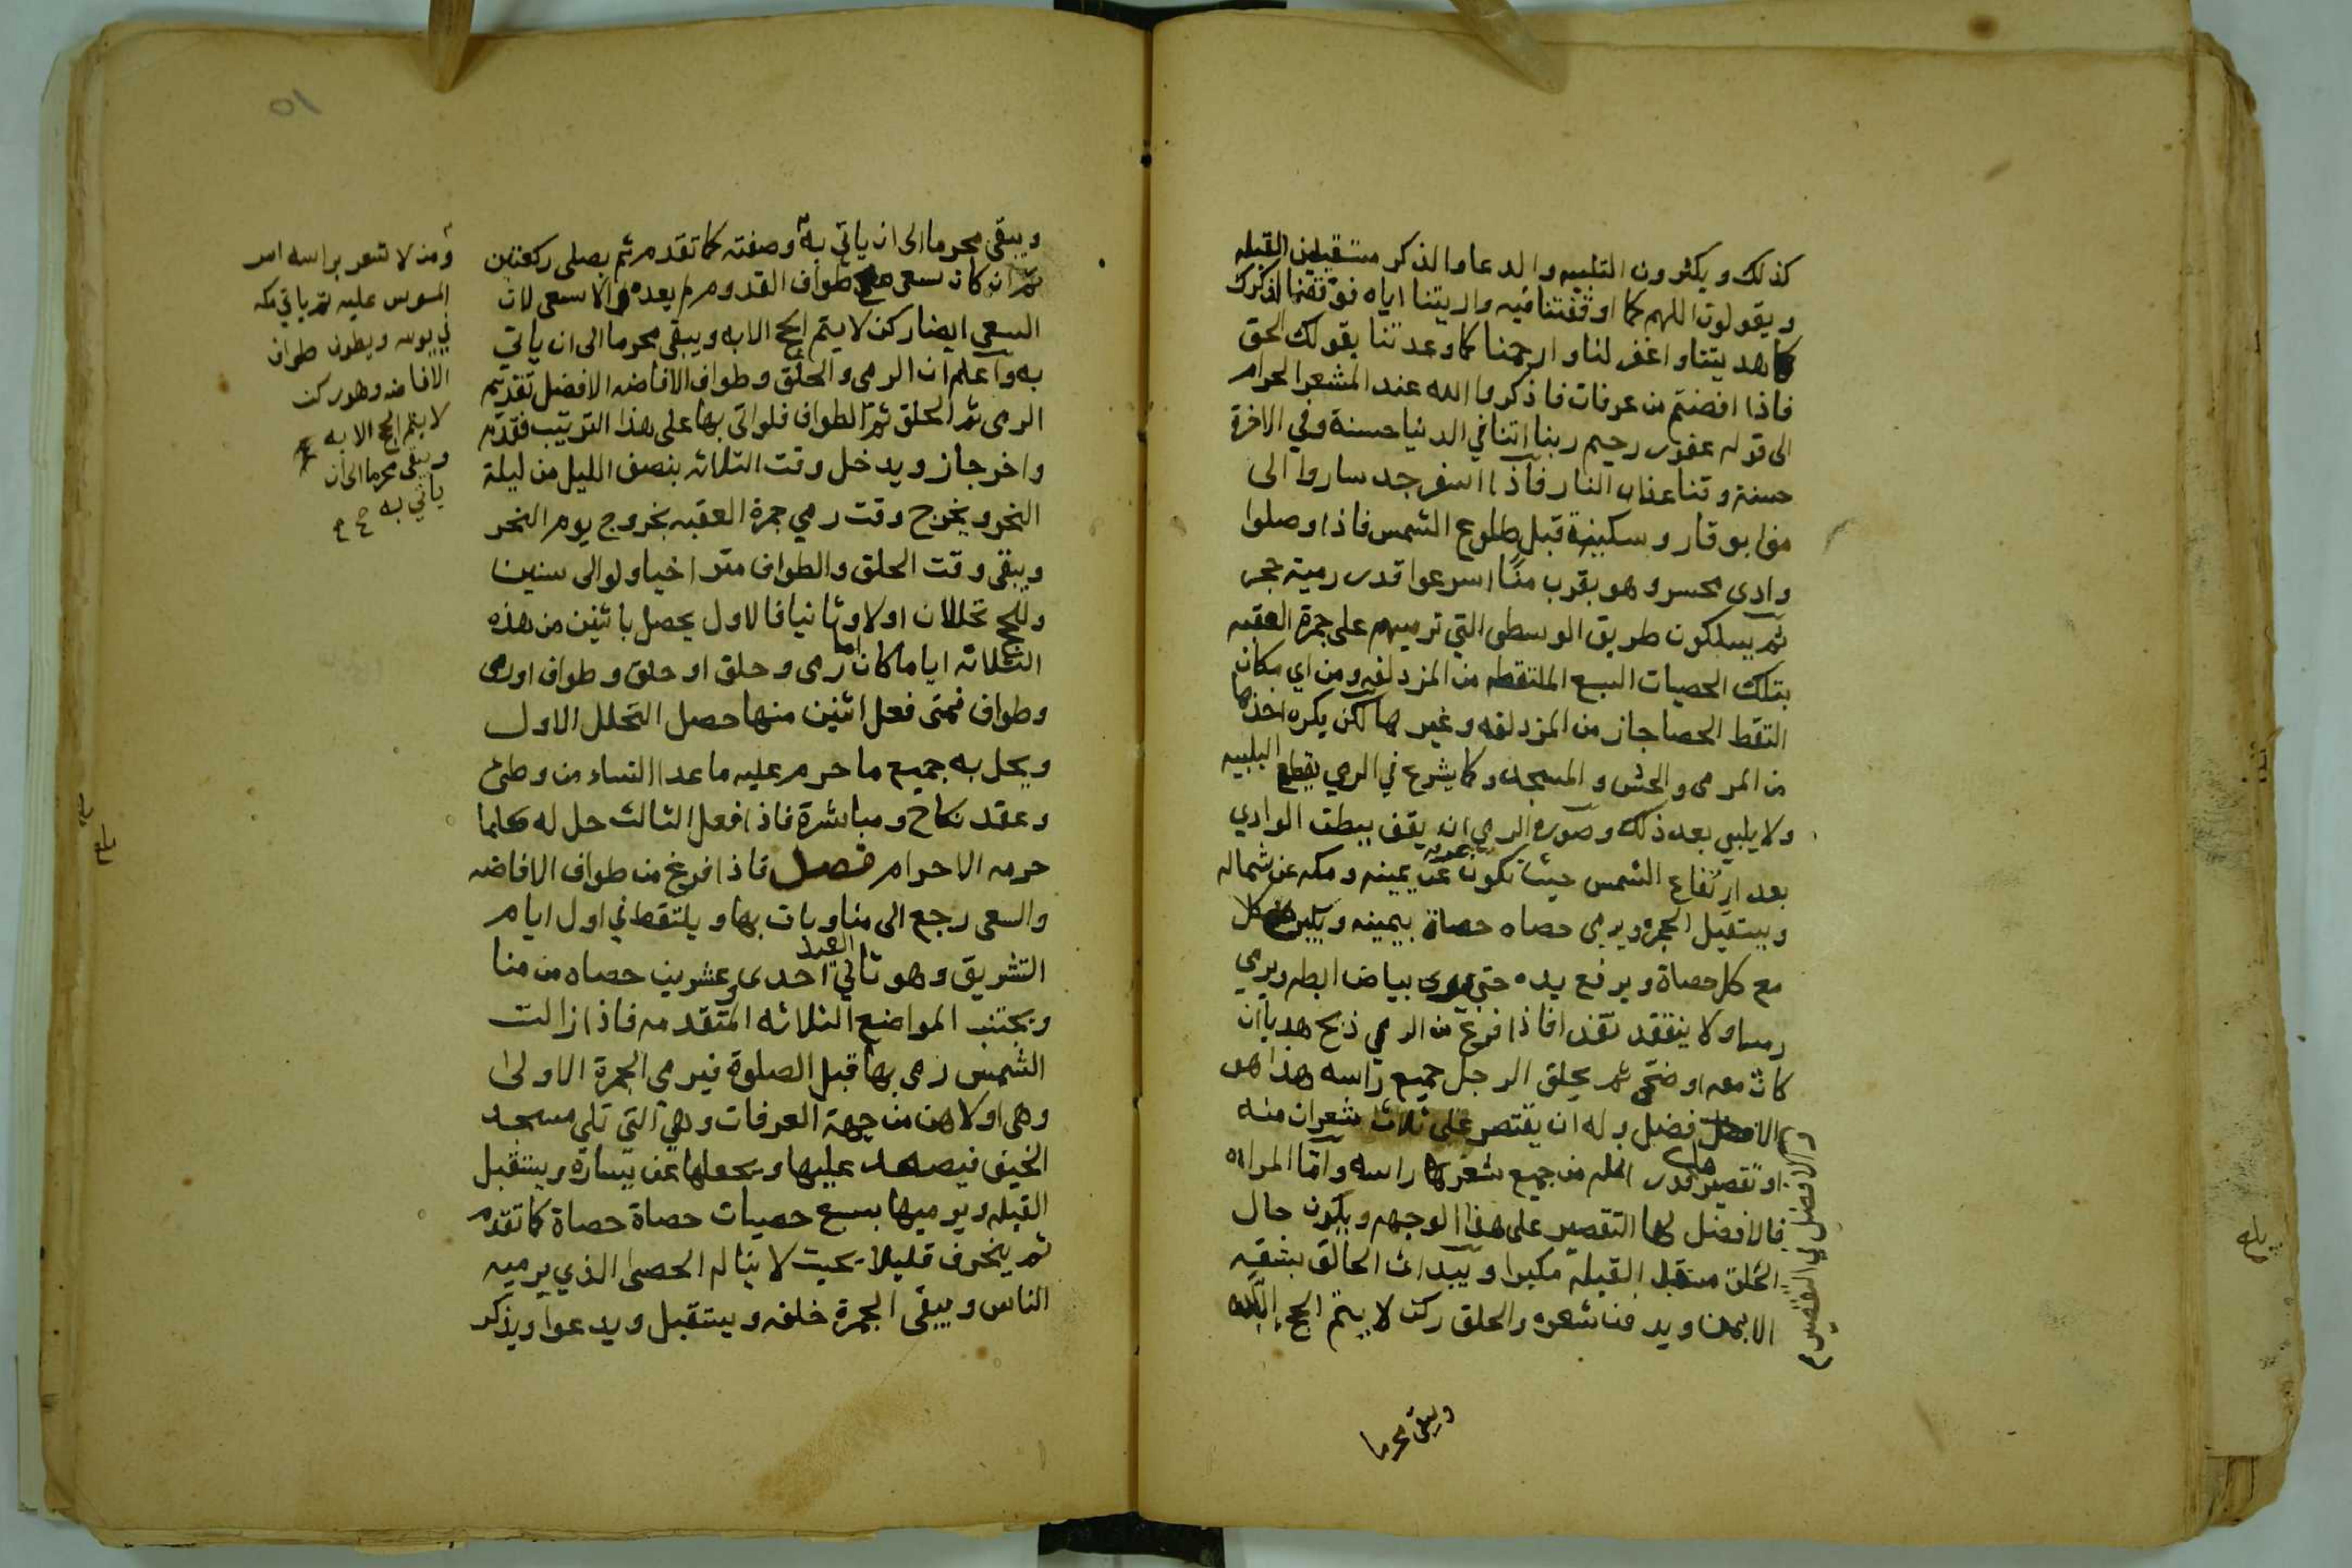 كذلك ويكثرون التلبيه والدعا والذكر مستقبلين القبله
ويقولون اللهم كما اوقفتنا فيه واريتنا اياه فوفقنا لذكرك
كما هديتنا واغفر لنا وارحمنا كما وعدتنا بقولك الحق
فاذا افضتم من عرفات فاذكروا الله عند المشعر الحرام
الى قوله غفور رحيم ربنا اتنا في الدنيا حسنة وفي الاخرة
حسنة وقنا عذاب النار فاذا اسفر جد ساروا الى
منى بوقار وسكينة قبل طلوع الشمس فاذا وصلوا
وادى محسر وهو بقرب منًا اسرعوا قدر رمية حجر
ثم يسلكون طريق الوسطى التي ترميهم على جمرة العقبه
بتلك الحصيات السبع الملتقطه من المزدلفه ومن اي مكان
التقط الحصا جاز من المزدلفه وغيرها لكن يكره اخذها
من المرمى والحش والمسجد وكما يشرع في الرمي يقطع التلبيه
ولا يلبي بعد ذلك وصورة الرمي ان يقف ببطن الوادي
بعد ارتفاع الشمس حيث تكون عرفه عن يمينه ومكه عن شماله
ويستقبل الجمره ويرمى حصاه حصاة بيمينه ويكبر
مع كل حصاة ويرفع يده حتى يرى بياض ابطه ويرمي
رميا ولا ينقد نقدا فاذا فرغ من الرمي ذبح هديا ان
كان معه او ضحى ثم يحلق الرجل جميع راسه هذا هو
الافضل وله ان يقتصر على ثلاث شعرات منه
او تقصير قدر انمله من جميع شعر راسه واما المراه
فالافضل لها التقصير على هذا الوجه ويكون حال
الحلق مستقبل القبله مكبرا ويبدا الحالق بشقه
الايمن ويدفن شعره والحلق ركن لا يتم الحج الا به
والافضل في التقصير
ويبقى محرما
ويبقى محرما الى ان ياتي به وصفته كما تقدم ثم يصلى ركعتين
ثم ان كان سعى مع طواف القدوم لم يعده والا سعى لان
السعي ايضا ركن لا يتم الحج الا به ويبقى محرما الى ان ياتي
به واعلم ان الرمى والحلق وطواف الافاضه الافضل تقديم
الرمى ثم الحلق ثم الطواف فلو اتى بها على هذا الترتيب فقدم
واخر جاز ويدخل وقت الثلاثه بنصف الليل من ليلة
النحر ويخرج وقت رمي جمرة العقبه بخروج يوم النحر
ويبقى وقت الحلق والطواف متراخيا ولو الى سنين
وللحج تحللان اولا وثانيا فالاول يحصل باثنين من هذه
الثلاثه اياما كان اما رمى وحلق او حلق وطواف او رمى
وطواف فمتى فعل اثنين منها حصل التحلل الاول
ويحل به جميع ما حرم عليه ما عدا النساء من وطئ
وعقد نكاح ومباشرة فاذا فعل الثالث حل له كلما
حرمه الاحرام فصل فاذا فرغ من طواف الافاضه
والسعى رجع الى منا وبات بها ويلتقط في اول ايام
التشريق وهو ثاني العيد احدى وعشرين حصاه من منا
ويجتنب المواضع الثلاثه المتقدمه فاذا زالت
الشمس رمى بها قبل الصلوة فيرمى الجمرة الاولى
وهى اولاهن من جهة العرفات وهي التي تلي مسجد
الخيف فيصعد عليها ويجعلها عن يساره ويستقبل
القبله ويرميها بسبع حصيات حصاة حصاة كما تقدم
ثم ينحرف قليلا بحيث لا يناله الحصى الذي يرميه
الناس ويبقى الجمرة خلفه ويستقبل ويدعوا ويذكر
ومن لا شعر براسه امر
الموس عليه ثم ياتي مكه
في يومه ويطوف طواف
الافاضه وهو ركن
لا يتم الحج الا به
ويبقى محرما الى ان
ياتي به
٥١